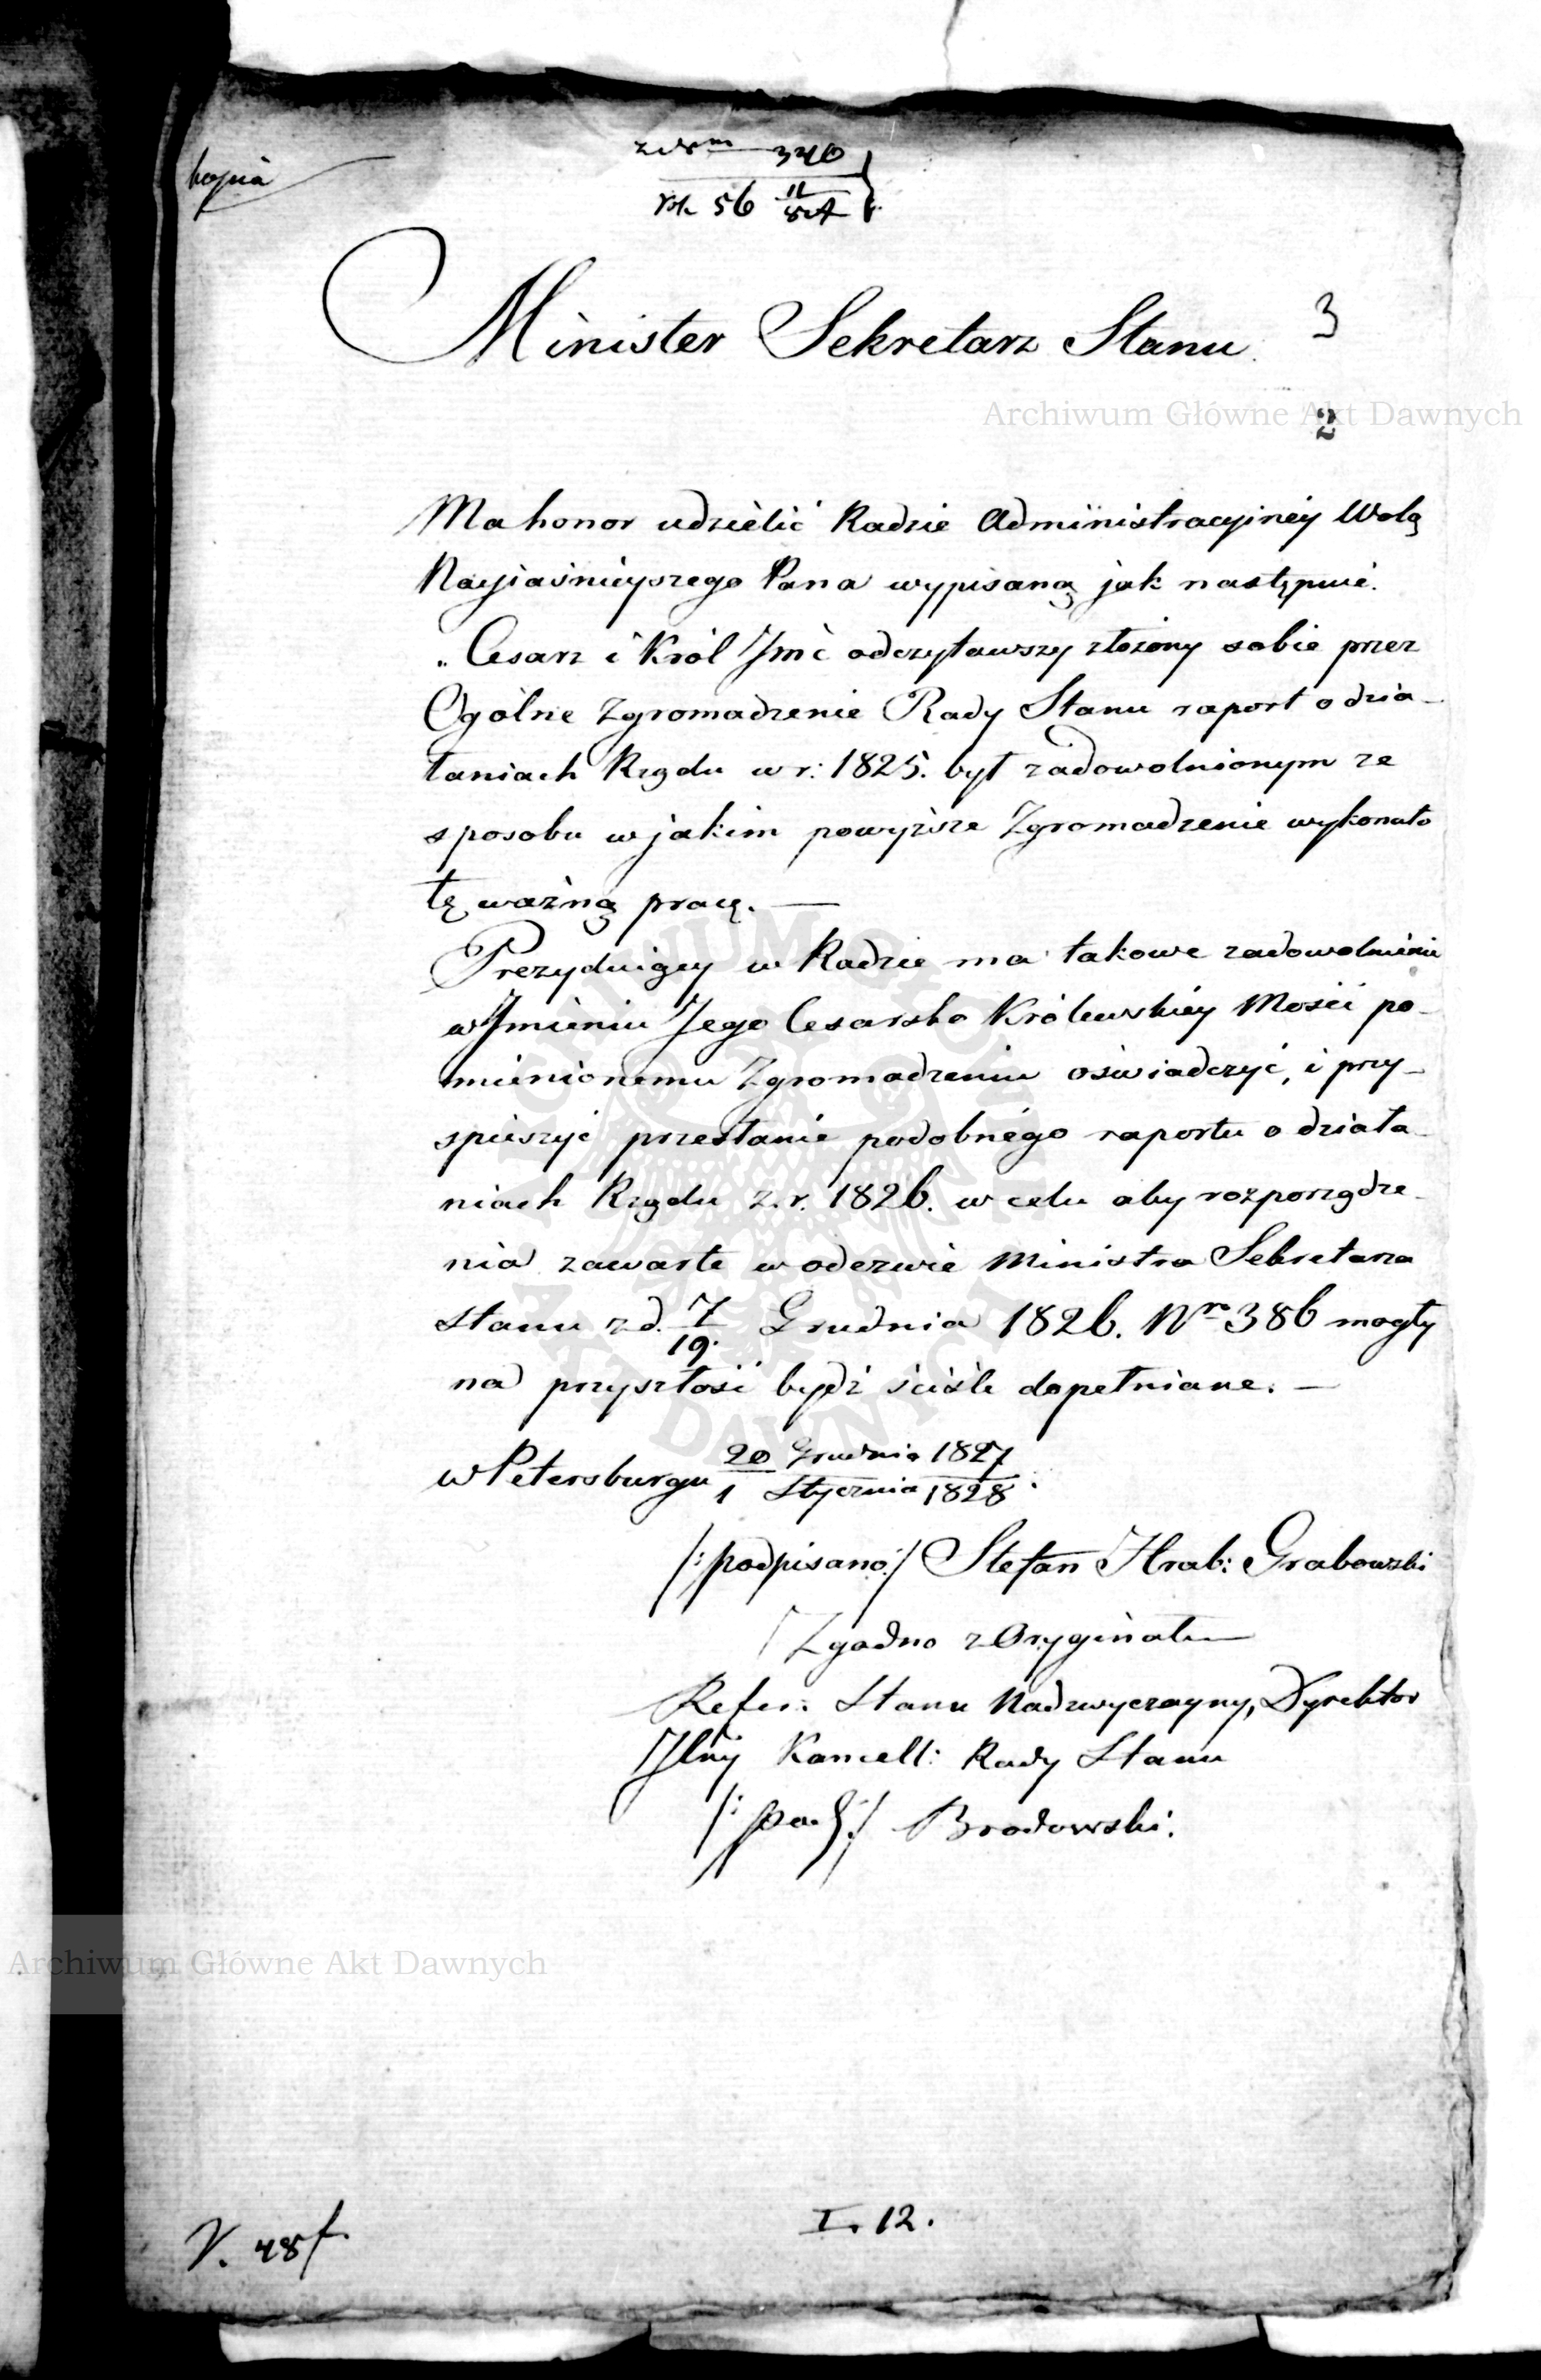 kopia
340
56
Minister Sekretarz Stanu
3
Archiwum Główne Akt Dawnych
2
Ma honor udzielić Radzie Administracyiney Wolą
Nayiaśnieyszego Pana wypisaną jak następuie.
„Cesarz i Król Jmć odczytawszy złożony sobie przez
Ogólne Zgromadzenie Rady Stanu raport o dzia-
łaniach Rządu w r: 1825. był zadowolnionym ze
sposobu w jakim powyższe Zgromadzenie wykonało
tę ważną pracę. —
Prezyduiący w Radzie ma takowe zadowolnienie
w Jmieniu Jego Cesarsko Królewskiey Mości po-
mienionemu Zgromadzeniu oświadczyć, i przy-
spieszyć przesłanie podobnégo raportu o działa-
niach Rządu z r. 1826. w celu aby rozporządze-
nia zawarte w odezwie Ministra Sekretarza
Stanu z d. 7/19. Grudnia 1826. Nro 386 mogły
na przyszłość bydź ściśle dopełniane. —
w Petersburgu 20 Grudnia 1827 / 1 Stycznia 1828.
/:podpisano:/ Stefan Hrab: Grabowski
Zgodno z Oryginałem
Refer: Stanu Nadzwyczayny, Dyrektor
Kancell: Rady Stanu
/:pod:/ Brodowski.
Archiwum Główne Akt Dawnych
I. 12.
V. 48f.
ARCHIWUM GŁÓWNE AKT DAWNYCH